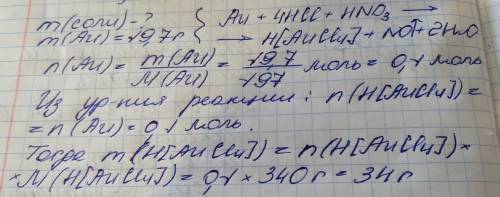 m(соли) - ? { Au + 4HCl + HNO₃ →
m(Au) = 19,7г → H[AuCl₄] + NO↑ + 2H₂O
n(Au) = m(Au)/M(Au) = 19,7/197 моль = 0,1 моль
Из ур-ния реакции: n(H[AuCl₄]) =
= n(Au) = 0,1 моль.
Тогда m(H[AuCl₄]) = n(H[AuCl₄]) ×
× M(H[AuCl₄]) = 0,1 × 340 г = 34 г